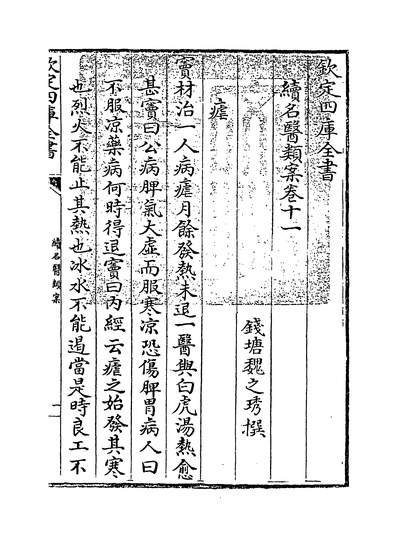 欽定四庫全書
續名醫類案卷十一
錢塘魏之琇撰
瘧
竇材治一人病瘧月餘發熱未退一醫與白虎湯熱愈
甚竇曰公病脾氣大虛而服寒涼恐傷脾胃病人曰
不服凉藥病何時得退竇曰內經云瘧之始發其寒
也烈火不能止其熱也冰水不能遏當是時良工不
欽定四庫全書
續名醫類案
一